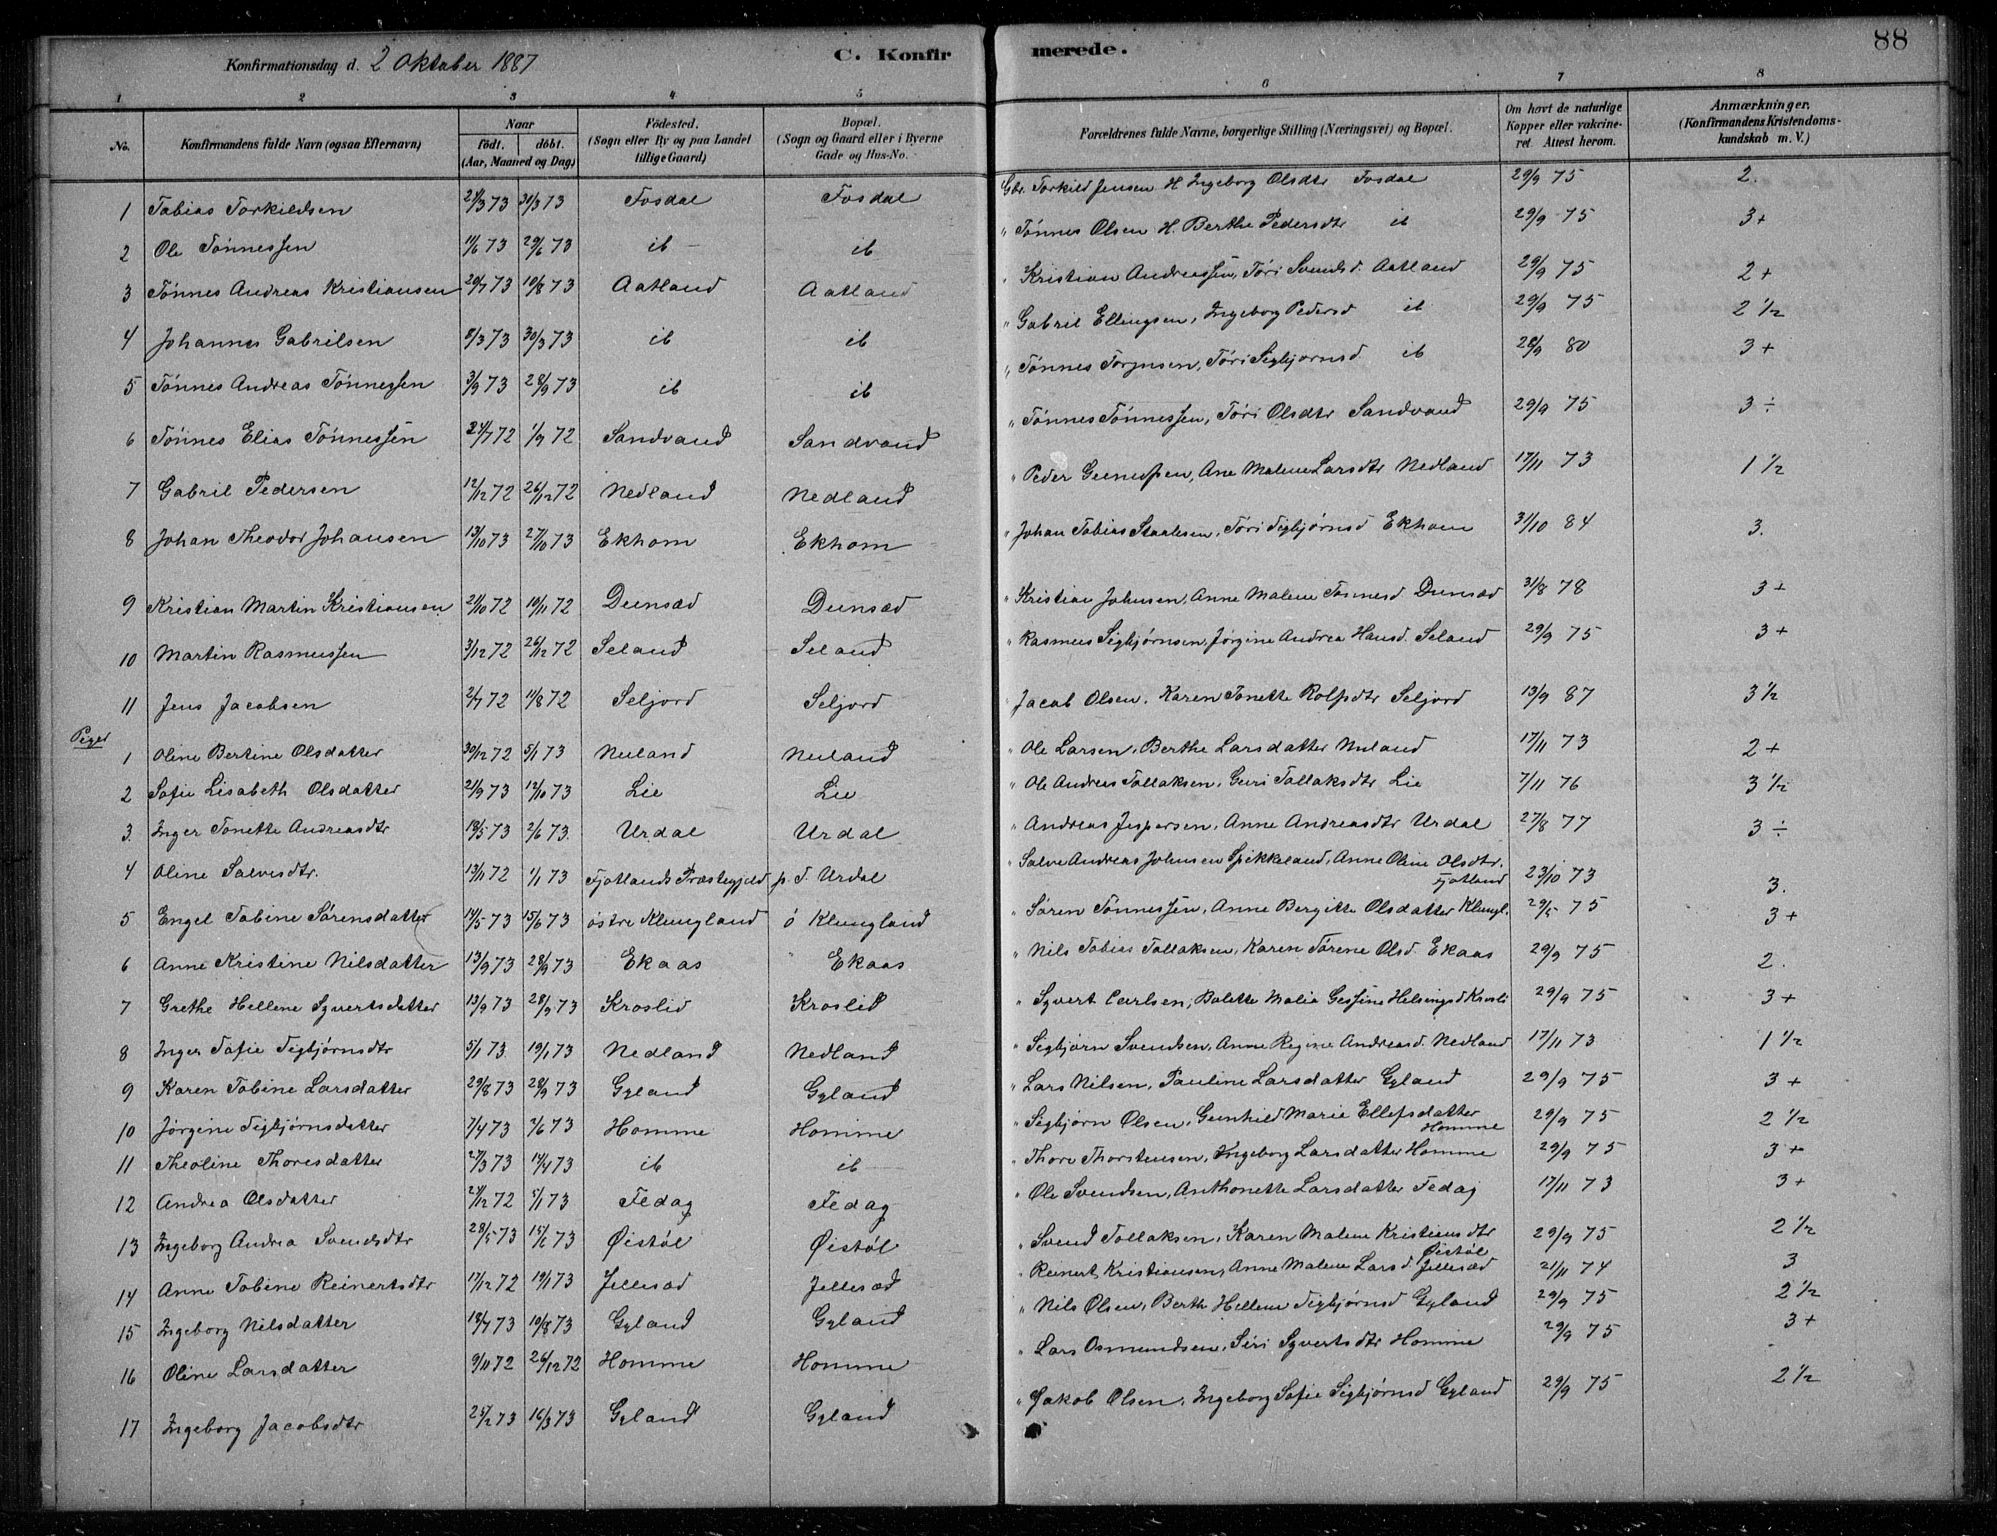 Konfirmationsdag d. 2 Oktober 1887 C. Konfirmerede. 88
1 2 3 4 5 6 7 8
No. Konfirmandens fulde Navn (ogsaa Efternavn) Naar födt. döbt. (Aar, Maaned og Dag) Födested. (Sogn eller By og paa Landet tillige Gaard) Bopæl. (Sogn og Gaard eller i Byerne Gade og Hus-No. Forældrenes fulde Navne, borgerlige Stilling (Næringsvei) og Bopæl. Om havt de naturlige Kopper eller vakcineret. Attest herom. Anmærkninger. (Konfirmandens Kristendomskundskab m. V.)
1 Tobias Torkildsen 21/3 73 30/3 73 Fosdal Fosdal Gbr. Torkild Jensen H. Ingeborg Olsdtr Fosdal 29/9 75 2.
2 Ole Tönnessen 11/6 73 29/6 73 ib ib " Tønnes Olsen H. Berthe Pedersdtr ib 29/9 75 3+
3 Tönnes Andreas Kristiansen 20/7 73 10/8 73 Aatland Aatland " Kristian Andreassen, Töri Svendsd. Aatland 29/9 75 2+
4 Johannes Gabrilsen 8/3 73 30/3 73 ib ib " Gabril Ellingsen, Ingeborg Pedersd ib 29/9 75 2 1/2
5 Tönnes Andreas Tönnessen 3/9 73 28/9 73 ib ib " Tönnes Torjusen, Töri Sigbjørnsd. ib 28/9 80 3+
6 Tönnes Elias Tönnessen 21/7 72 1/9 72 Sandvand Sandvand " Tönnes Tönnessen, Töri Olsdtr Sandvand 29/9 75 3 ÷
7 Gabril Pedersen 12/12 72 26/12 72 Nedland Nedland " Peder Ane Malene Larsdtr Nedland 17/11 73 1 1/2
8 Johan Theodor Johansen 13/10 73 27/10 73 Ekhom Ekhom " Johan Tobias Staalesen, Töri Sigbjørnsd Ekhom 31/10 84 3.
9 Kristian Martin Kristiansen 21/10 72 10/11 72 Dunsæd Dunsæd " Kristian Johnsen, Anne Malene Tönnesd Dunsæd 31/8 78 3+
10 Martin Rasmussen 3/12 72 26/12 72 Seland Seland " Rasmus Sigbjørnsen, Jørgine Andrea Hansd. Seland 29/9 75 3+
11 Jens Jacobsen 2/7 72 11/8 72 Seljord Seljord Jacob Olsen, Karen Tonette Rolfsdtr Seljord 13/9 87 3 1/2
Piger
1 Oline Bertine Olsdatter 30/12 72 5/1 73 Nuland Nuland " Ole Larsen, Berthe Larsdatter Nuland 17/11 73 2+
2 Sofie Lisabeth Olsdatter 21/9 73 12/10 73 Lie Lie " Ole Andreas Tollaksen, Guri Tollaksdtr Lie 7/11 76 3 1/2
3. Inger Tonette Andreasdtr 18/5 73 2/6 73. Urdal Urdal " Andreas Jespersen, Anne Andreasdtr Urdal 27/8 77 3 ÷
4 Oline Salvesdtr. 13/11 72 1/1 73 Fjotlands Præstegjeld p. T. Urdal " Salve Andreas Johnsen Spikkeland, Anne Oline Olsdtr. Fjotland 23/10 73 3.
5 Engel Tobine Sørensdatter 14/5 73 15/6 73 östre Klungland ö Klungland " Søren Tönnessen, Anne Bergitte Olsdatter Klungl. 29/5 75 3+
6 Anne Kristine Nilsdatter 13/9 73 28/9 73 Ekaas " Ekaas " Nils Tobias Tollaksen, Karen Tørene Olsd. Ekaas 29/9 75 2.
7 Grethe Hellene Syvertsdatter 13/9 73 28/9 73 Kroslid Kroslid " Syvert Carlsen, Bolette Malia Gessine Helsingsd Krosli 29/9 75 3+
8 Inger Sofie Sigbjørnsdtr 5/1 73 19/1 73 Nedland Nedland " Sigbjørn Svendsen, Anne Regine Andreasd. Nedland 17/11 73 1 1/2
9 Karen Tobine Larsdatter 29/8 73 28/9 73 Gyland Gyland " Lars Nilsen, Pauline Larsdatter Gyland 29/9 75 3+
10 Jørgine Sigbjørnsdatter 7/4 73 2/6 73 Homme Homme " Sigbjørn Olsen, Gunhild Marie Ellefsdatter Homme 29/9 75 2 1/2
11 Theoline Thoresdatter 27/3 73 14/4 73 ib ib " Thore Thorstensen, Ingeborg Larsdatter Homme 29/9 75 3+
12 Andrea Olsdatter 21/12 72 5/1 73 Fedag Fedag " Ole Svendsen, Anthonette Larsdatter Fedag 17/11 73 3+
13 Ingeborg Andrea Svendsdtr 28/5 73 15/6 73 Øistöl Øistöl " Svend Tollaksen, Karen Malene Kristiansdtr Øistöl 29/9 75 2 1/2
14 Anne Tobine Reinertsdtr 17/12 72 19/1 73 Jellesæd Jellesæd " Reinert Kristiansen, Anne Malene Larsd Jellesæd 21/11 74 3
15 Ingeborg Nilsdatter 18/7 73 10/8 73 Gyland Gyland " Nils Olsen, Berth Hellene Sigbjørnsd Gyland 29/9 75 2 1/2
16 Oline Larsdatter 9/11 72 26/12 72 Homme Homme " Lars Osmundsen, Siri Syvertsdtr Homme 29/9 75 3+
17 Ingeborg Jacobsdtr 25/2 73 16/3 73 Gyland Gyland " Jakob Olsen, Ingeborg Sofie Sigbjørnsd Gyland 29/9 75 2 1/2